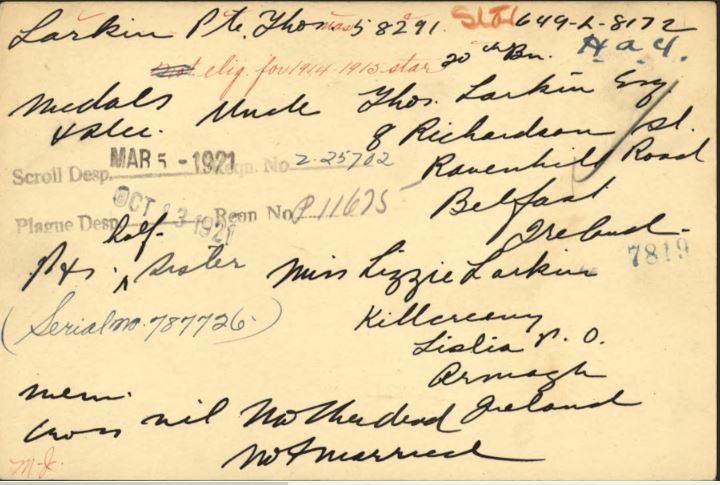 Larkin Pte. Thomas 58291. 649-L-8172
20th Bn. H.a.y.
Not elig. for 1914-1915 star
Medals Uncle Thos. Larkin Esq
& Dec. 8 Richardson St.
Scroll Desp. MAR 5 - 1921 Reqn. No 2-25702 Ravenhill Road
Plaque Desp. OCT 13 1921 Reqn No P 11675 Belfast
Ireland.
7819
P&S. half-Sister Miss Lizzie Larkin
(Serial no. 787726.) Killcreany
Lislia P.O.
Armagh
Mem. Ireland
Cross nil Mother dead
Not married
M.J.